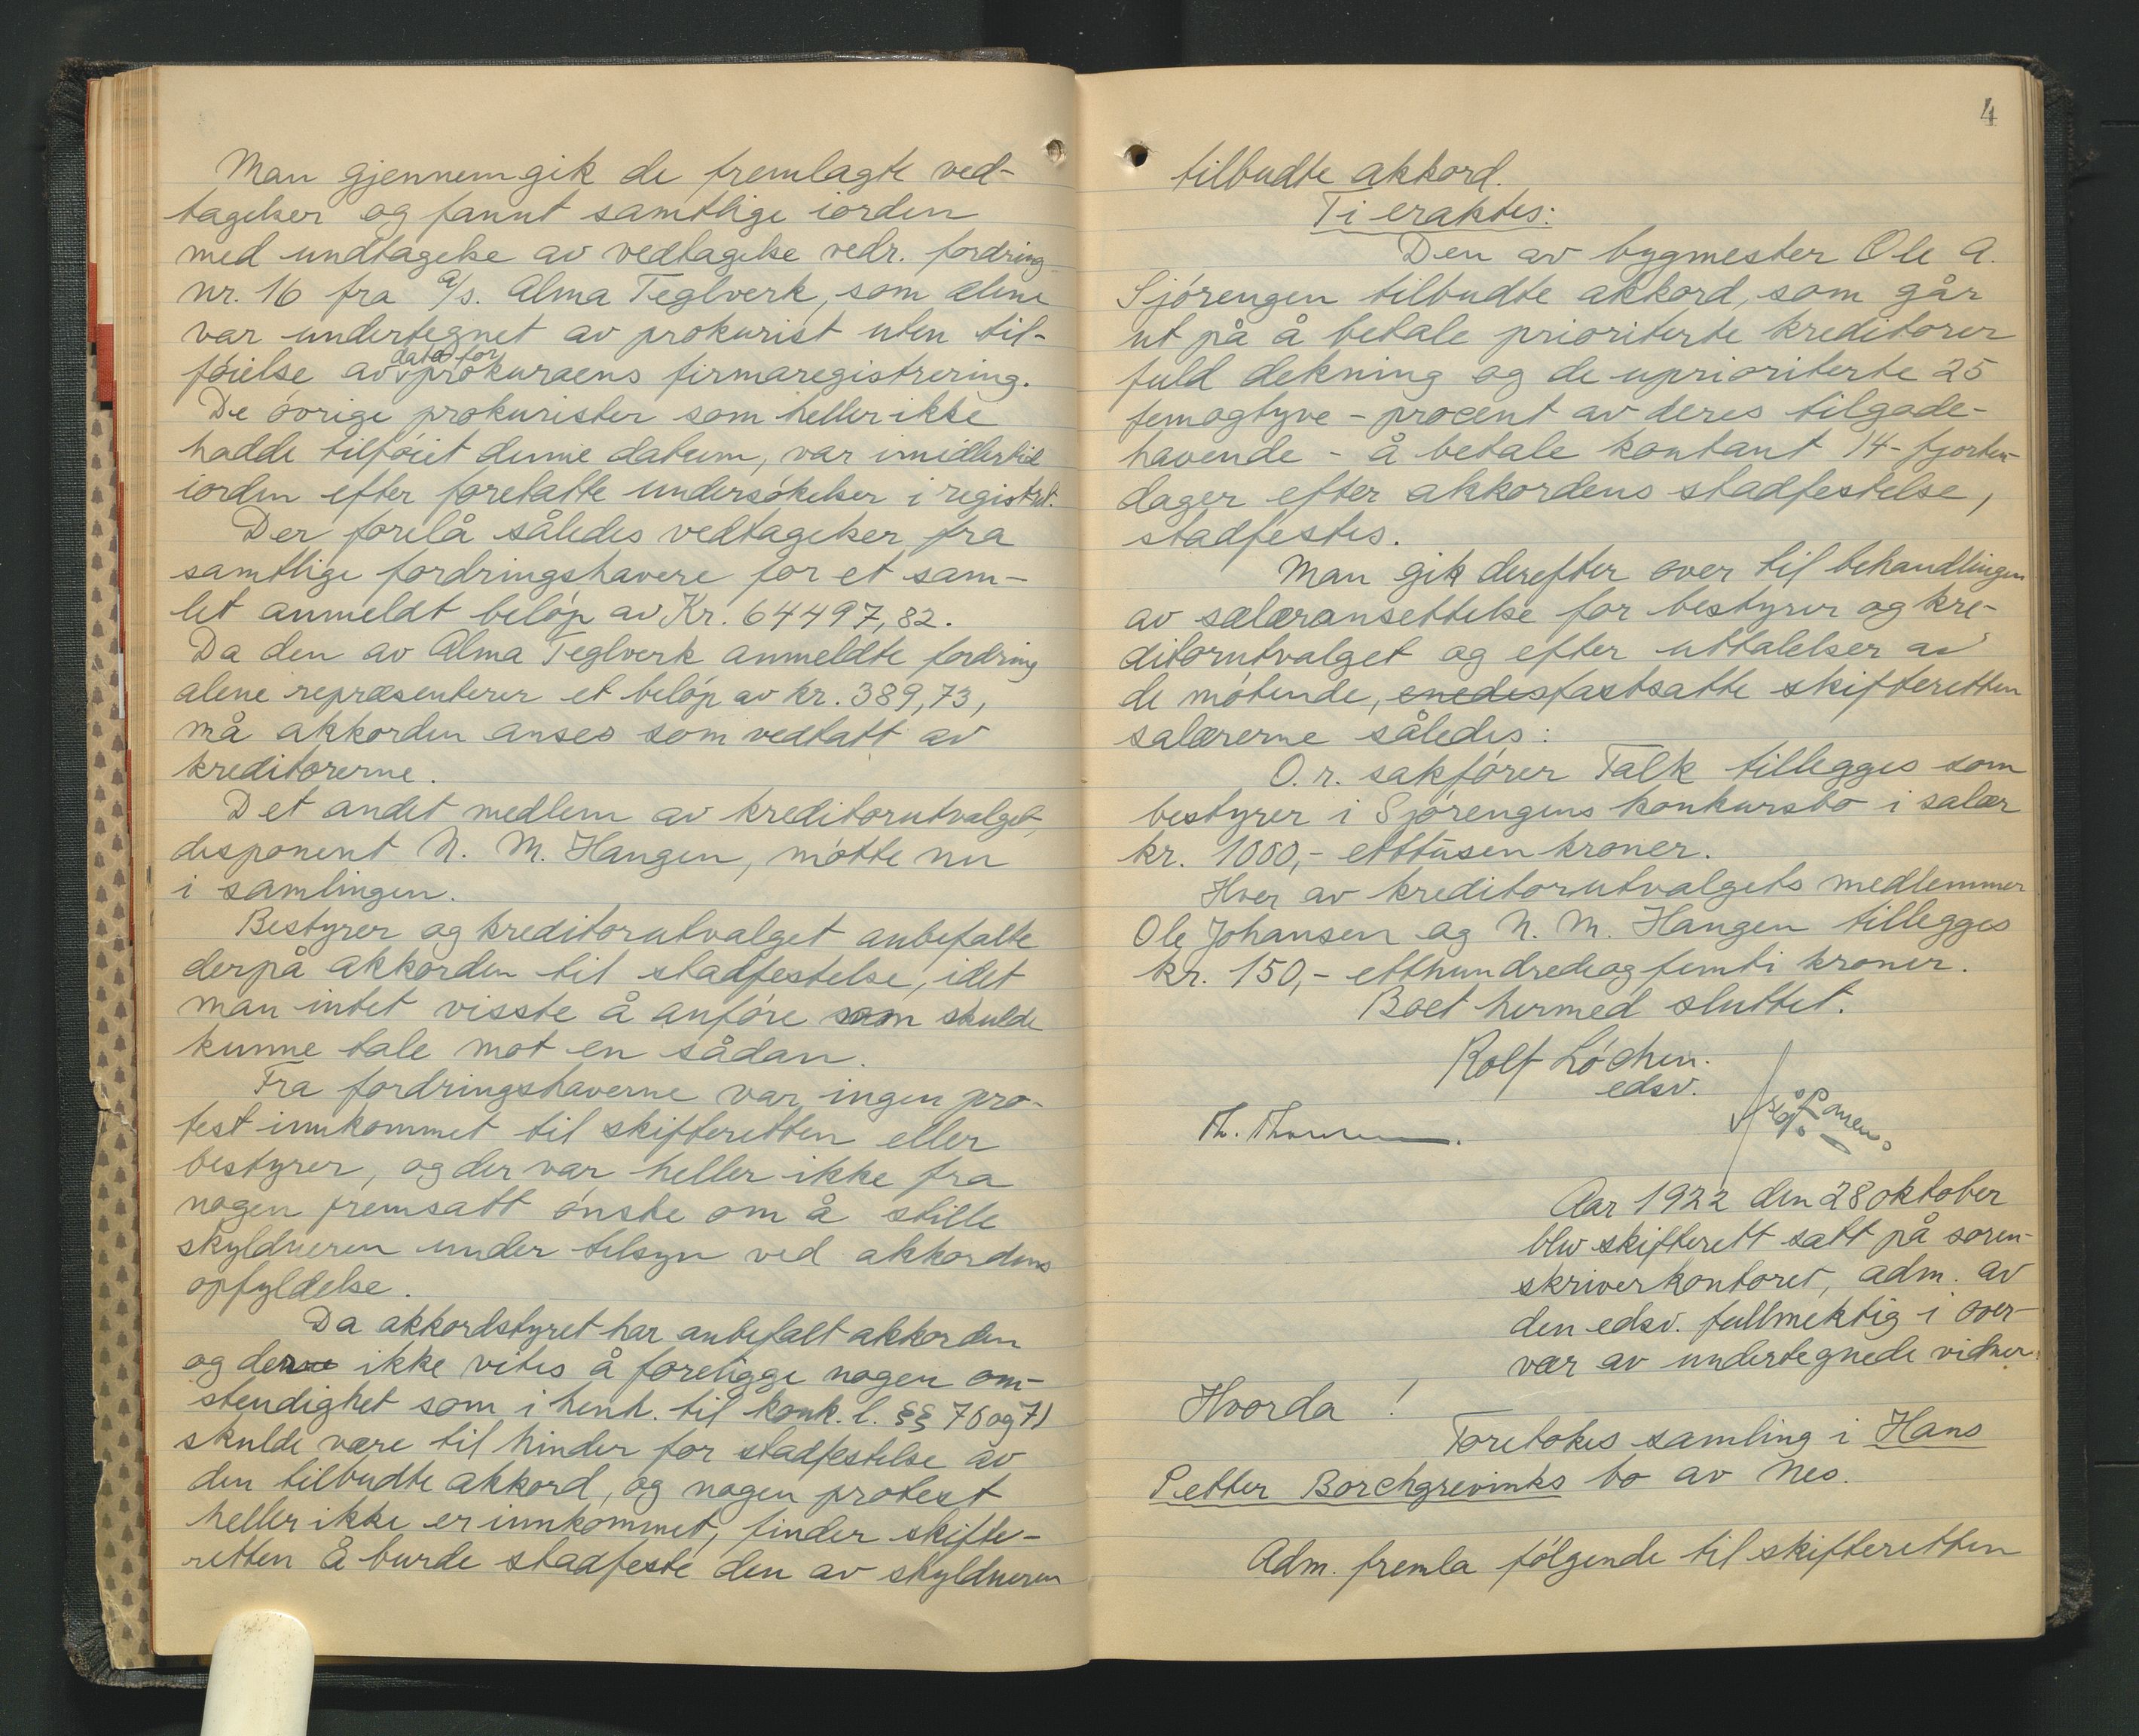 Man gjennemgik de fremlagte ved-
tagelser og fannt samtlige iorden
med undtagelse av vedtagelse vedr. fordring
nr. 16 fra A/s. Alma Teglverk, som alene
var undertegnet av prokurist uten til-
dato for
føielse av prokuraens firmaregistrering.
De øvrige prokurister som heller ikke
hadde tilføiet denne datum, var imidlertid
iorden efter foretatte undersøkelser i registret.
Der forelå således vedtagelser fra
samtlige fordringshavere for et sam-
let anmeldt beløp av Kr. 64497,82.
Da den av Alma Teglverk anmeldte fordring
alene repræsenterer et beløp av kr. 389,73,
må akkorden anses som vedtatt av
kreditorerne.
Det andet medlem av kreditorutvalget,
disponent N. M. Hangen, møtte nu
i samlingen.
Bestyrer og kreditorutvalget anbefalte
derpå akkorden til stadfestelse, idet
man intet visste å anføre som skulde
kunne tale mot en sådan.
Fra fordringshaverne var ingen pro-
test innkommet til skifteretten eller
bestyrer, og der var heller ikke fra
nogen fremsatt ønske om å stille
skyldneren under tilsyn ved akkordens
opfyldelse.
Da akkordstyret har anbefalt akkorden
og der ikke vites å foreligge nogen om-
stendighet som i henh. til konk. l. §§ 70 og 71
skulde være til hinder for stadfestelse av
den tilbudte akkord, og nogen protest
heller ikke er innkommet, finder skifte-
retten å burde stadfeste den av skyldneren
4
tilbudte akkord.
Ti eraktes:
Den av bygmester Ole A.
Sjørengen tilbudte akkord, som går
ut på å betale prioriterte kreditorer
fuld dekning og de uprioriterte 25
femogtyve - procent av deres tilgode-
havende - å betale kontant 14 - fjorten-
dager efter akkordens stadfestelse,
stadfestes.
Man gik derefter over til behandlingen
av salæransettelse for bestyrer og kre-
ditorutvalget og efter uttalelser av
de møtende, fastsatte skifteretten
salærerne således:
O. r. sakfører Falk tillegges som
bestyrer i Sjørengens konkursbo i salær
kr. 1000,- ettusen kroner.
Hver av kreditorutvalgets medlemmer
Ole Johansen og N. M. Hangen tillegges
kr. 150,- etthundredeogfemti kroner.
Boet hermed sluttet.
Rolf Løchen.
edsv.
Th.
Aar 1922 den 28 oktober
blev skifterett satt på soren-
skriverkontoret, adm. av
den edsv. fullmektig i over-
vær av undertegnede vidner.
Hvorda!
Foretokes samling i Hans
Petter Borchgrevinks bo av Nes.
Adm. fremla følgende til skifteretten